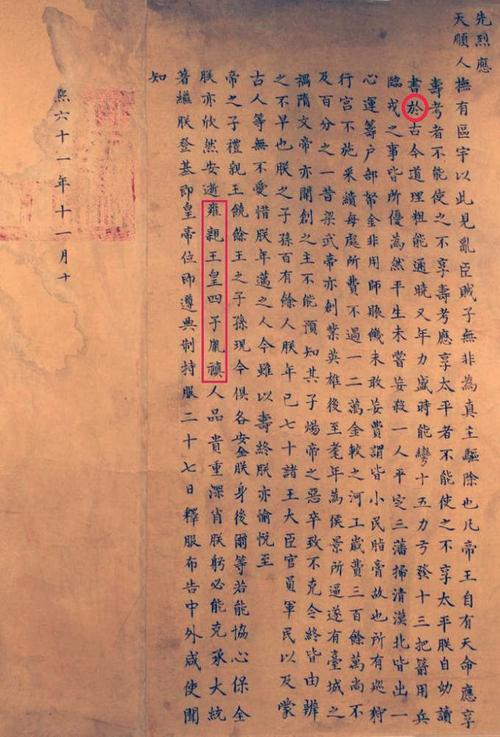 先烈應
天順人撫有區宇以此見亂臣賊子無非為真主驅除也凡帝王自有天命應享
壽考者不能使之不享壽考應享太平者不能使之不享太平朕自幼讀
書於古今道理粗能通曉又年力盛時能彎十五力弓發十三把箭用兵
臨戎之事皆所優為然平生未嘗妄殺一人平定三藩掃清漠北皆出一
心運籌户部帑金非用師賑饑未敢妄費謂皆小民脂膏故也所有巡狩
行宮不施采繢每處所費不過一二萬金較之河工歲費三百餘萬尚不
及百分之一昔梁武帝亦創業英雄後至耄年為侯景所逼遂有臺城之
禍隋文帝亦開創之主不能預知其子煬帝之惡卒致不克令終皆由辨
之不早也朕之子孫百有餘人朕年已七十諸王大臣官員軍民以及蒙
古人等無不愛惜朕年邁之人今雖以壽終朕亦愉悅至
帝之子禮親王饒餘王之子孫現今俱各安全朕身後爾等若能協心保全
朕亦欣然安逝雍親王皇四子胤禛人品貴重深肖朕躬必能克承大統
著繼朕登基即皇帝位即遵典制持服二十七日釋服布告中外咸使聞
知
熙六十一年十一月十